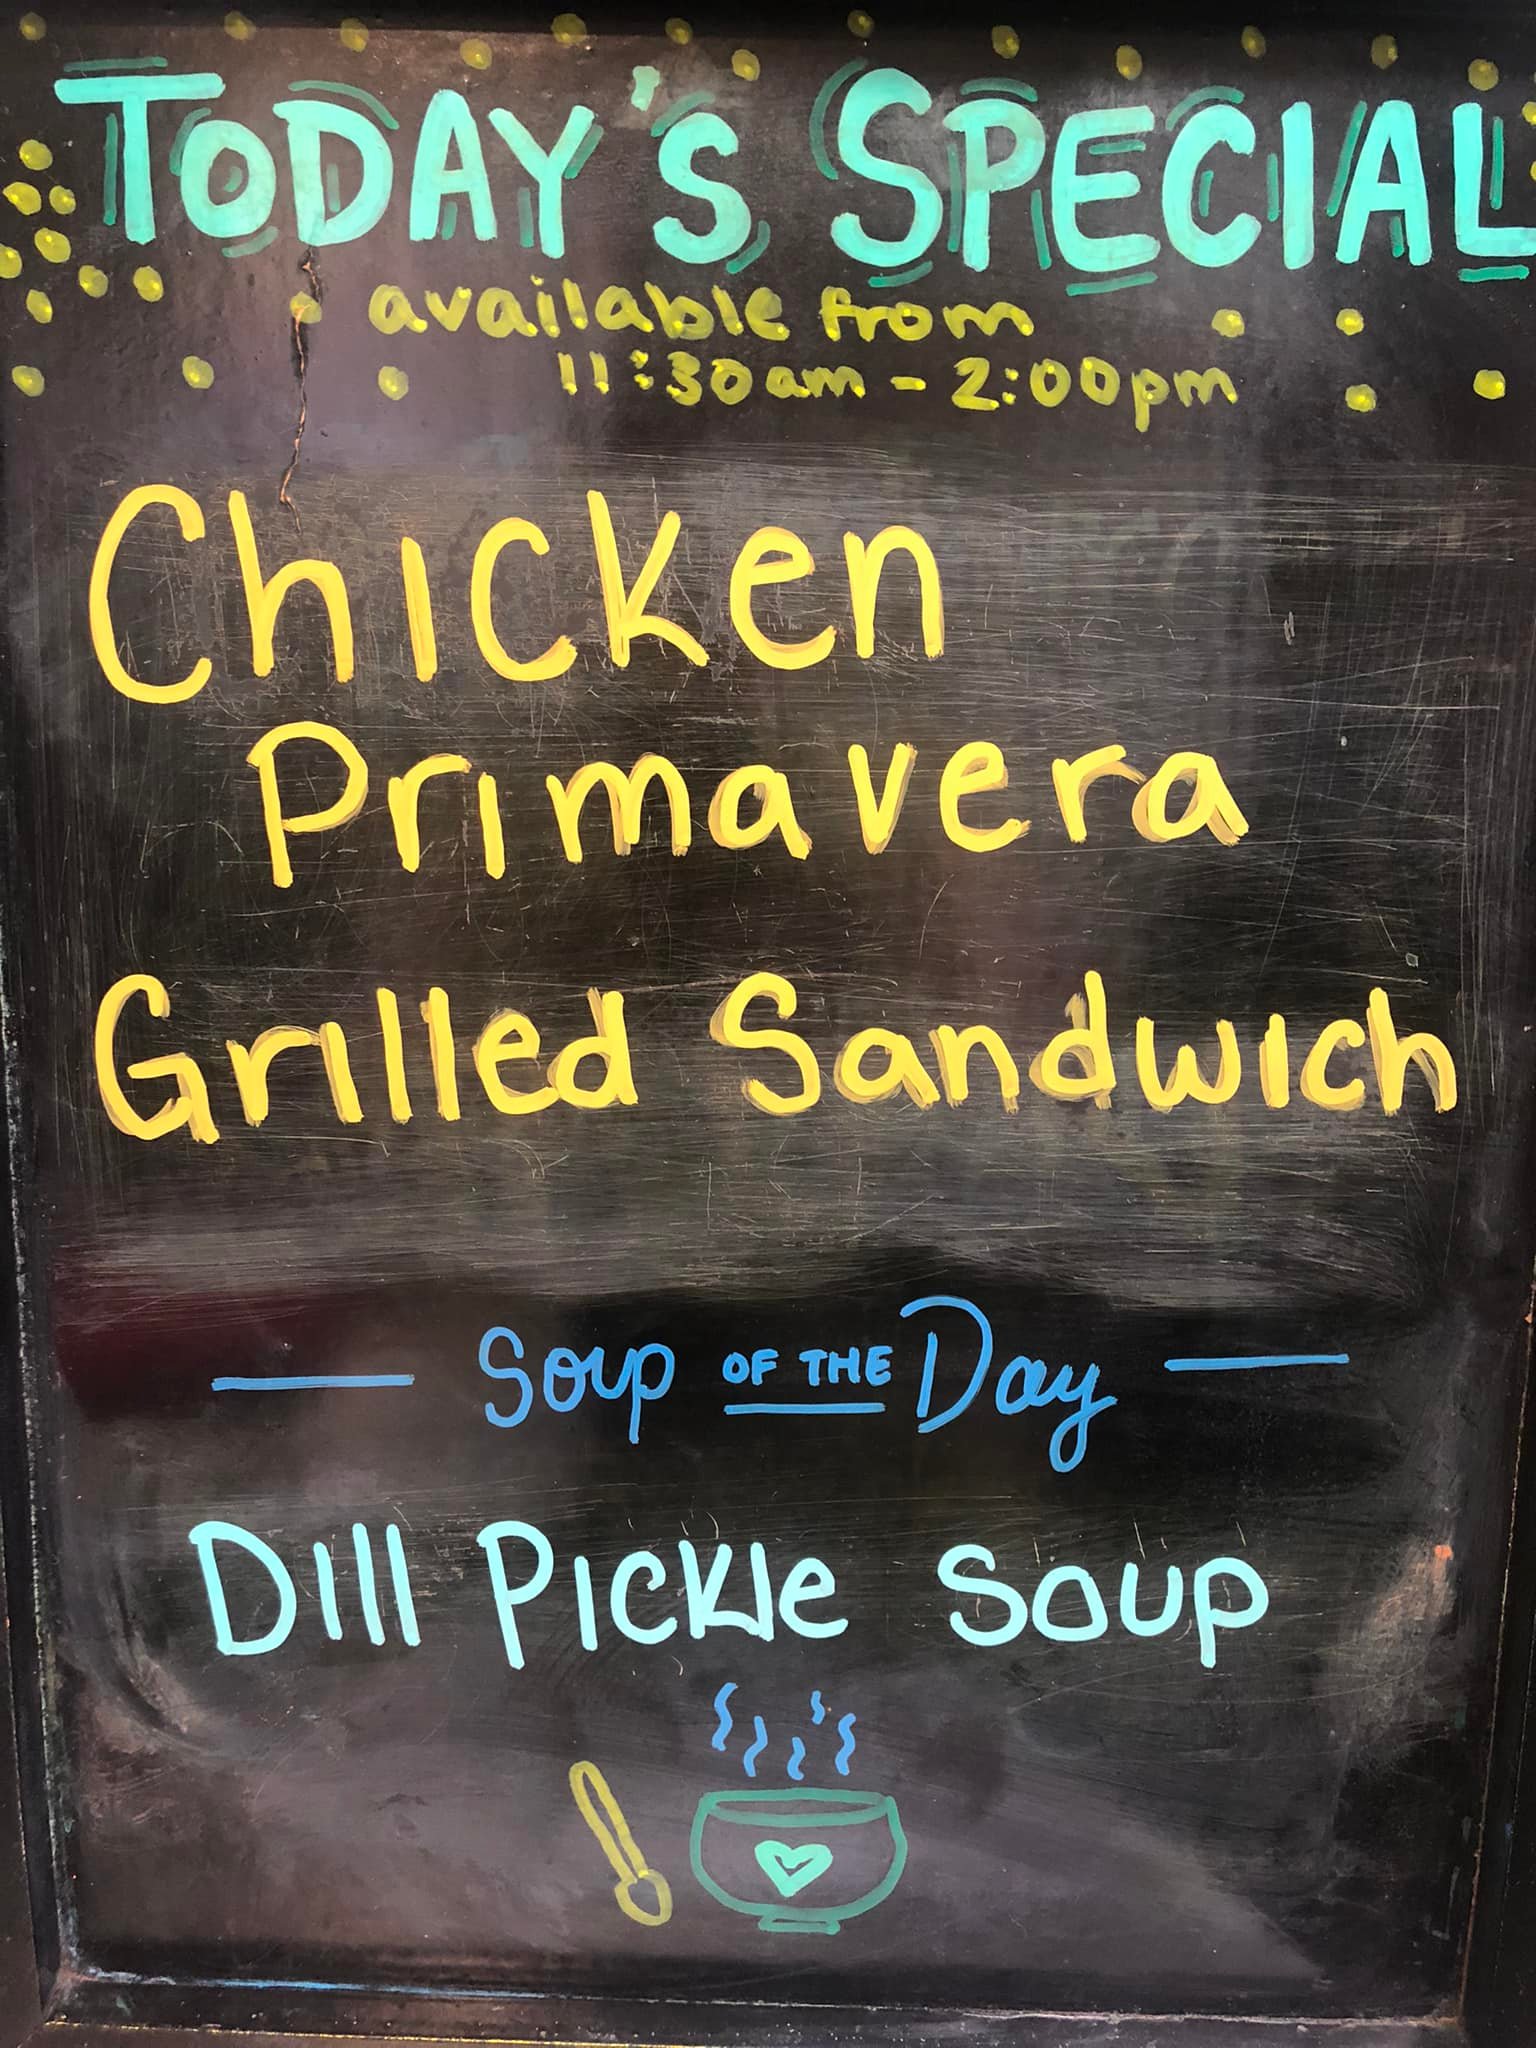 TODAY'S SPECIAL
available from
11:30am - 2:00pm
Chicken
Primavera
Grilled Sandwich
Soup OF THE Day
Dill Pickle Soup